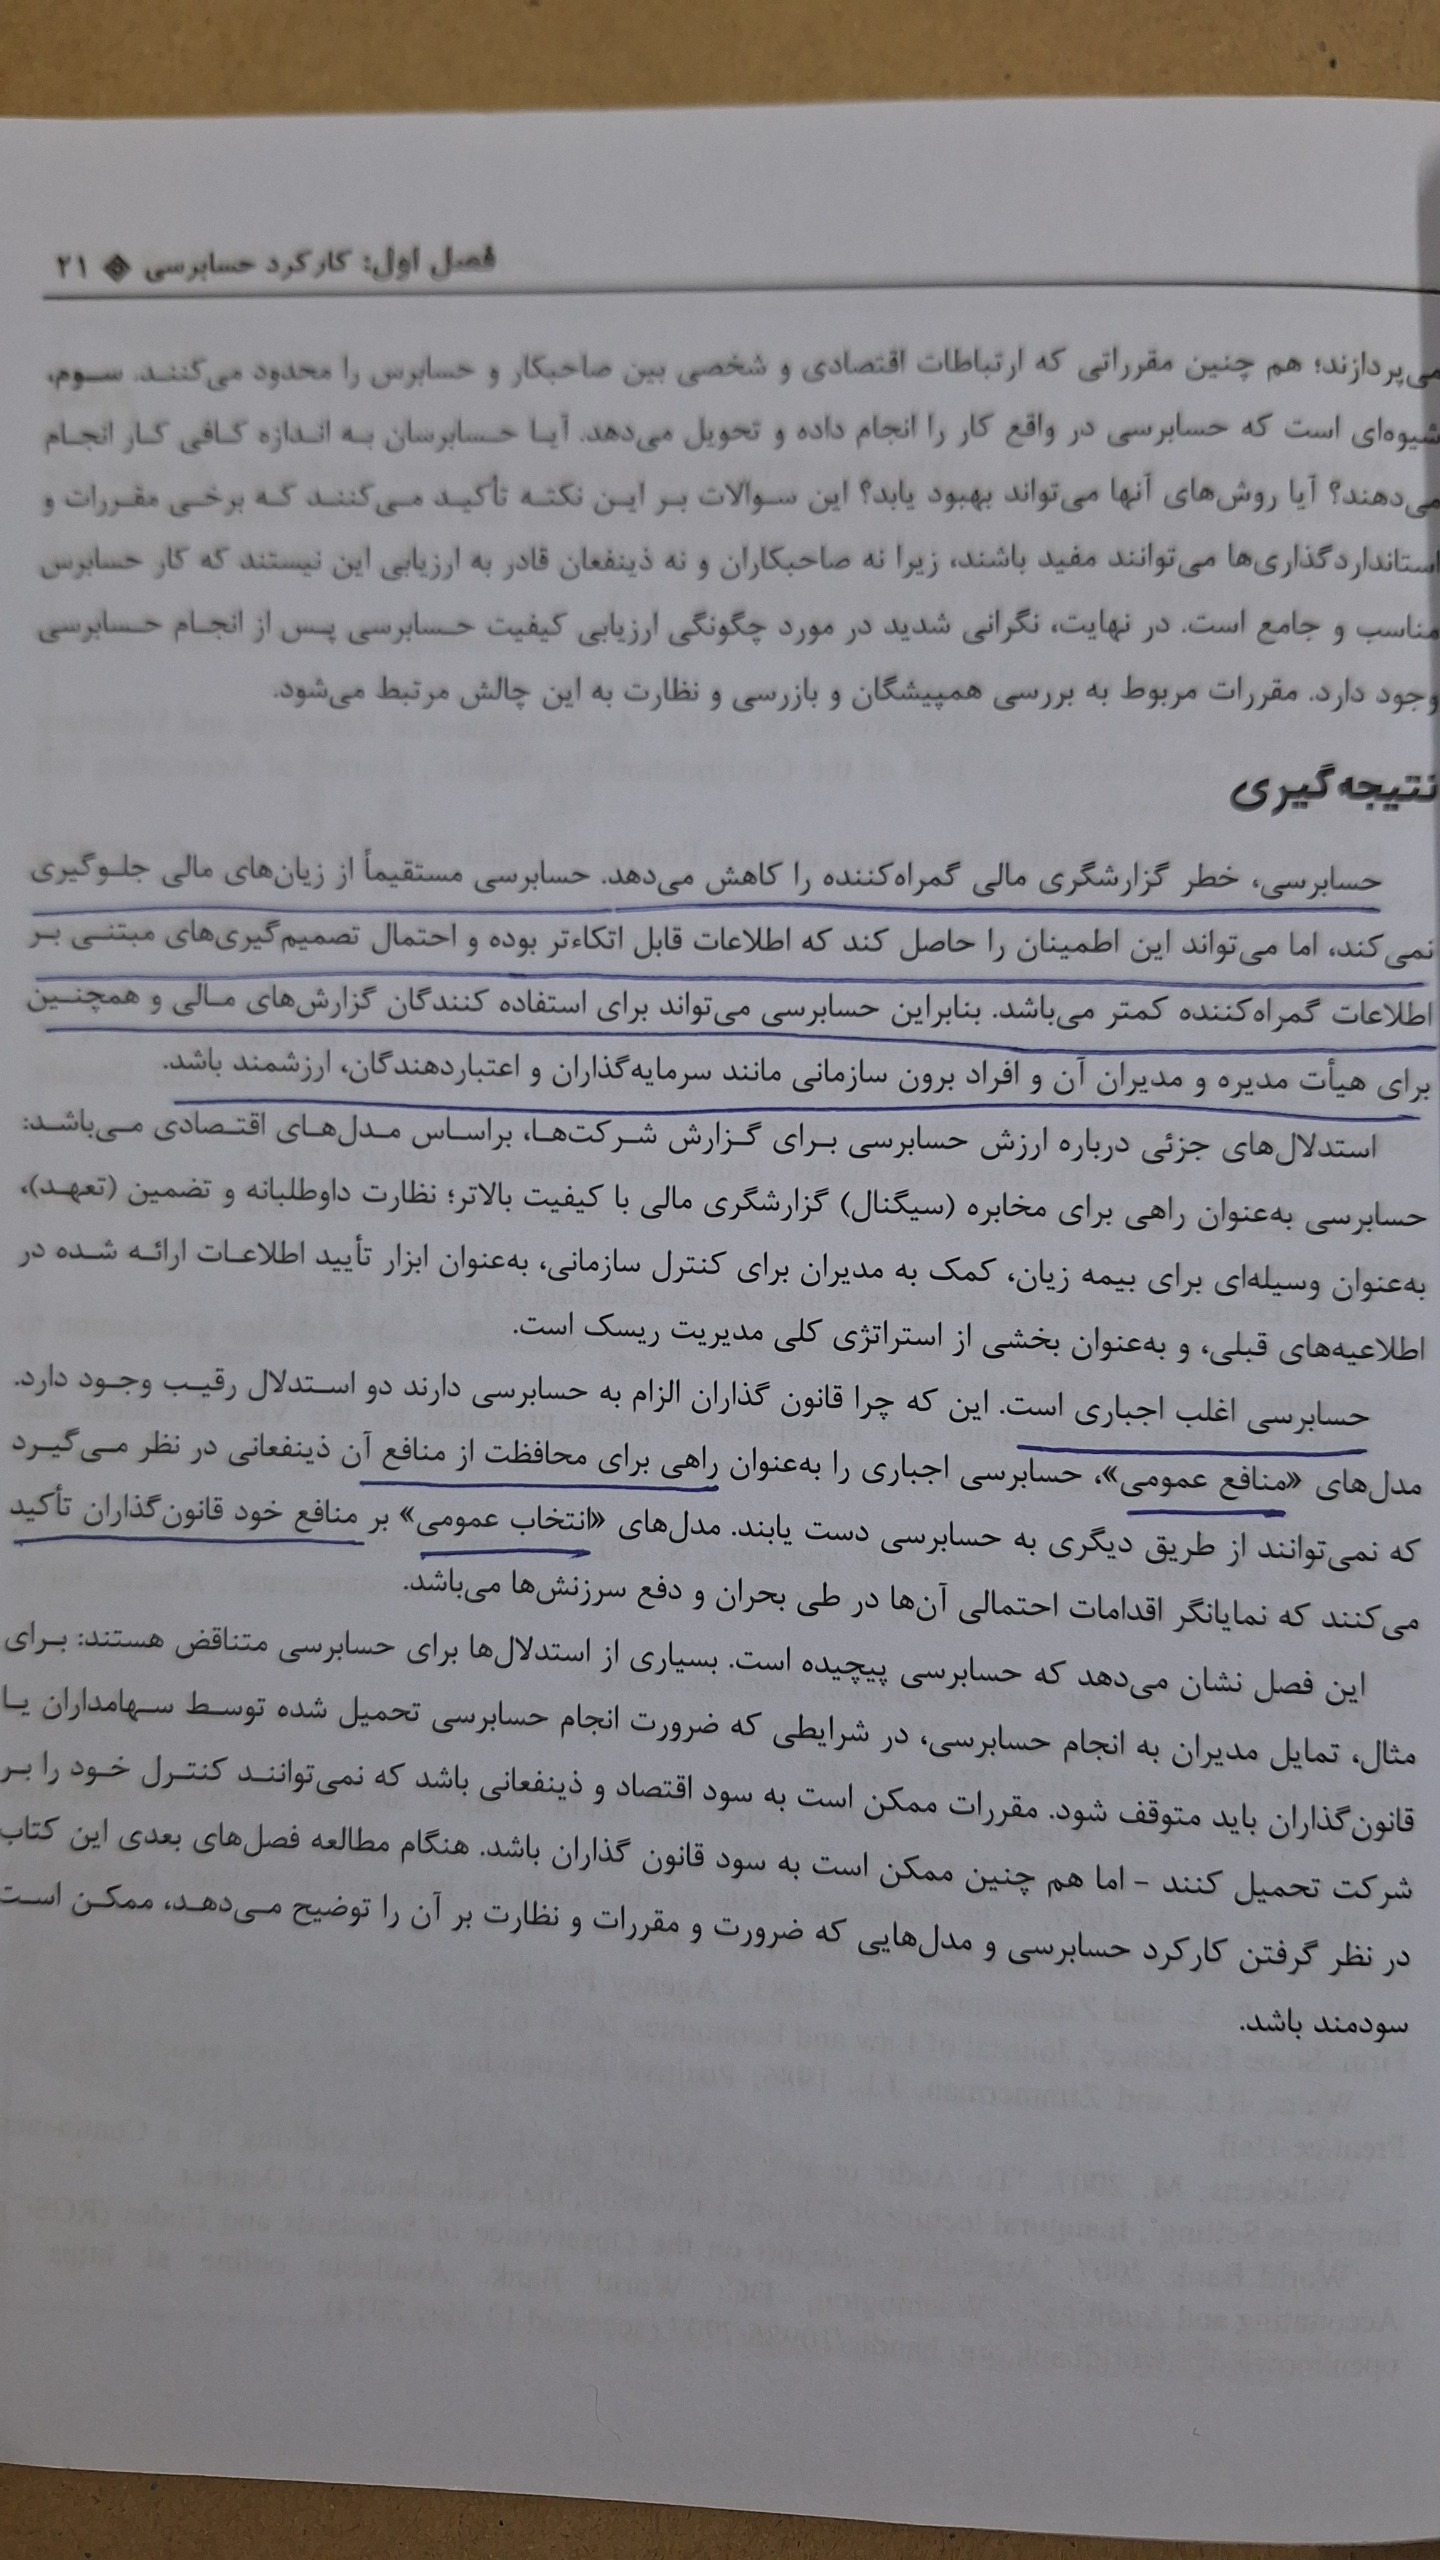 فصل اول: کارکرد حسابرسی ◈ ۲۱
می‌پردازند؛ هم چنین مقرراتی که ارتباطات اقتصادی و شخصی بین صاحبکار و حسابرس را محدود می‌کنند. سوم،
شیوه‌ای است که حسابرسی در واقع کار را انجام داده و تحویل می‌دهد. آیا حسابرسان به اندازه کافی کار انجام
می‌دهند؟ آیا روش‌های آنها می‌تواند بهبود یابد؟ این سوالات بر این نکته تأکید می‌کنند که برخی مقررات و
استانداردگذاری‌ها می‌توانند مفید باشند، زیرا نه صاحبکاران و نه ذینفعان قادر به ارزیابی این نیستند که کار حسابرس
مناسب و جامع است. در نهایت، نگرانی شدید در مورد چگونگی ارزیابی کیفیت حسابرسی پس از انجام حسابرسی
وجود دارد. مقررات مربوط به بررسی همپیشگان و بازرسی و نظارت به این چالش مرتبط می‌شود.
نتیجه‌گیری
حسابرسی، خطر گزارشگری مالی گمراه‌کننده را کاهش می‌دهد. حسابرسی مستقیماً از زیان‌های مالی جلوگیری
نمی‌کند، اما می‌تواند این اطمینان را حاصل کند که اطلاعات قابل اتکاءتر بوده و احتمال تصمیم‌گیری‌های مبتنی بر
اطلاعات گمراه‌کننده کمتر می‌باشد. بنابراین حسابرسی می‌تواند برای استفاده کنندگان گزارش‌های مالی و همچنین
برای هیأت مدیره و مدیران آن و افراد برون سازمانی مانند سرمایه‌گذاران و اعتباردهندگان، ارزشمند باشد.
استدلال‌های جزئی درباره ارزش حسابرسی برای گزارش شرکت‌ها، براساس مدل‌های اقتصادی می‌باشد:
حسابرسی به‌عنوان راهی برای مخابره (سیگنال) گزارشگری مالی با کیفیت بالاتر؛ نظارت داوطلبانه و تضمین (تعهد)،
به‌عنوان وسیله‌ای برای بیمه زیان، کمک به مدیران برای کنترل سازمانی، به‌عنوان ابزار تأیید اطلاعات ارائه شده در
اطلاعیه‌های قبلی، و به‌عنوان بخشی از استراتژی کلی مدیریت ریسک است.
حسابرسی اغلب اجباری است. این که چرا قانون گذاران الزام به حسابرسی دارند دو استدلال رقیب وجود دارد.
مدل‌های «منافع عمومی»، حسابرسی اجباری را به‌عنوان راهی برای محافظت از منافع آن ذینفعانی در نظر می‌گیرد
که نمی‌توانند از طریق دیگری به حسابرسی دست یابند. مدل‌های «انتخاب عمومی» بر منافع خود قانون‌گذاران تأکید
می‌کنند که نمایانگر اقدامات احتمالی آن‌ها در طی بحران و دفع سرزنش‌ها می‌باشد.
این فصل نشان می‌دهد که حسابرسی پیچیده است. بسیاری از استدلال‌ها برای حسابرسی متناقض هستند: برای
مثال، تمایل مدیران به انجام حسابرسی، در شرایطی که ضرورت انجام حسابرسی تحمیل شده توسط سهامداران یا
قانون‌گذاران باید متوقف شود. مقررات ممکن است به سود اقتصاد و ذینفعانی باشد که نمی‌توانند کنترل خود را بر
شرکت تحمیل کنند - اما هم چنین ممکن است به سود قانون گذاران باشد. هنگام مطالعه فصل‌های بعدی این کتاب
در نظر گرفتن کارکرد حسابرسی و مدل‌هایی که ضرورت و مقررات و نظارت بر آن را توضیح می‌دهد، ممکن است
سودمند باشد.